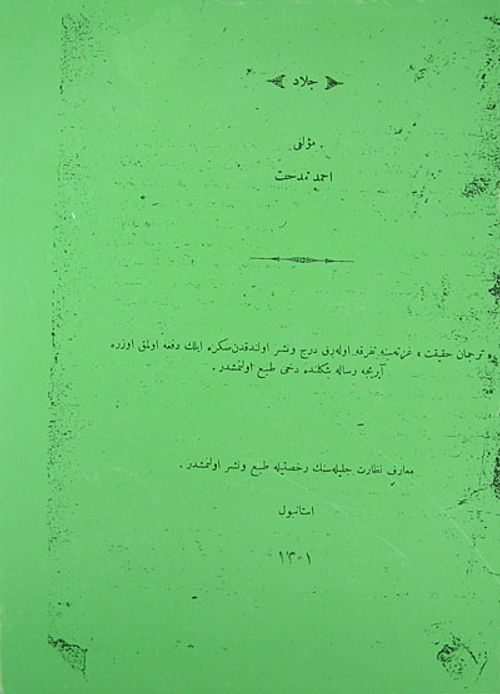 جلاد
مؤلفی
احمد مدحت
« ترجمان حقیقت » غزته‌سنه تفرقه اوله‌رق درج ونشر اولندقدن صکره ایلك دفعه اولمق اوزره
آیریجه رساله شکلنده دخی طبع اولنمشدر .
معارف نظارت جلیله‌سنك رخصتیله طبع ونشر اولنمشدر .
استانبول
۱۳۰۱